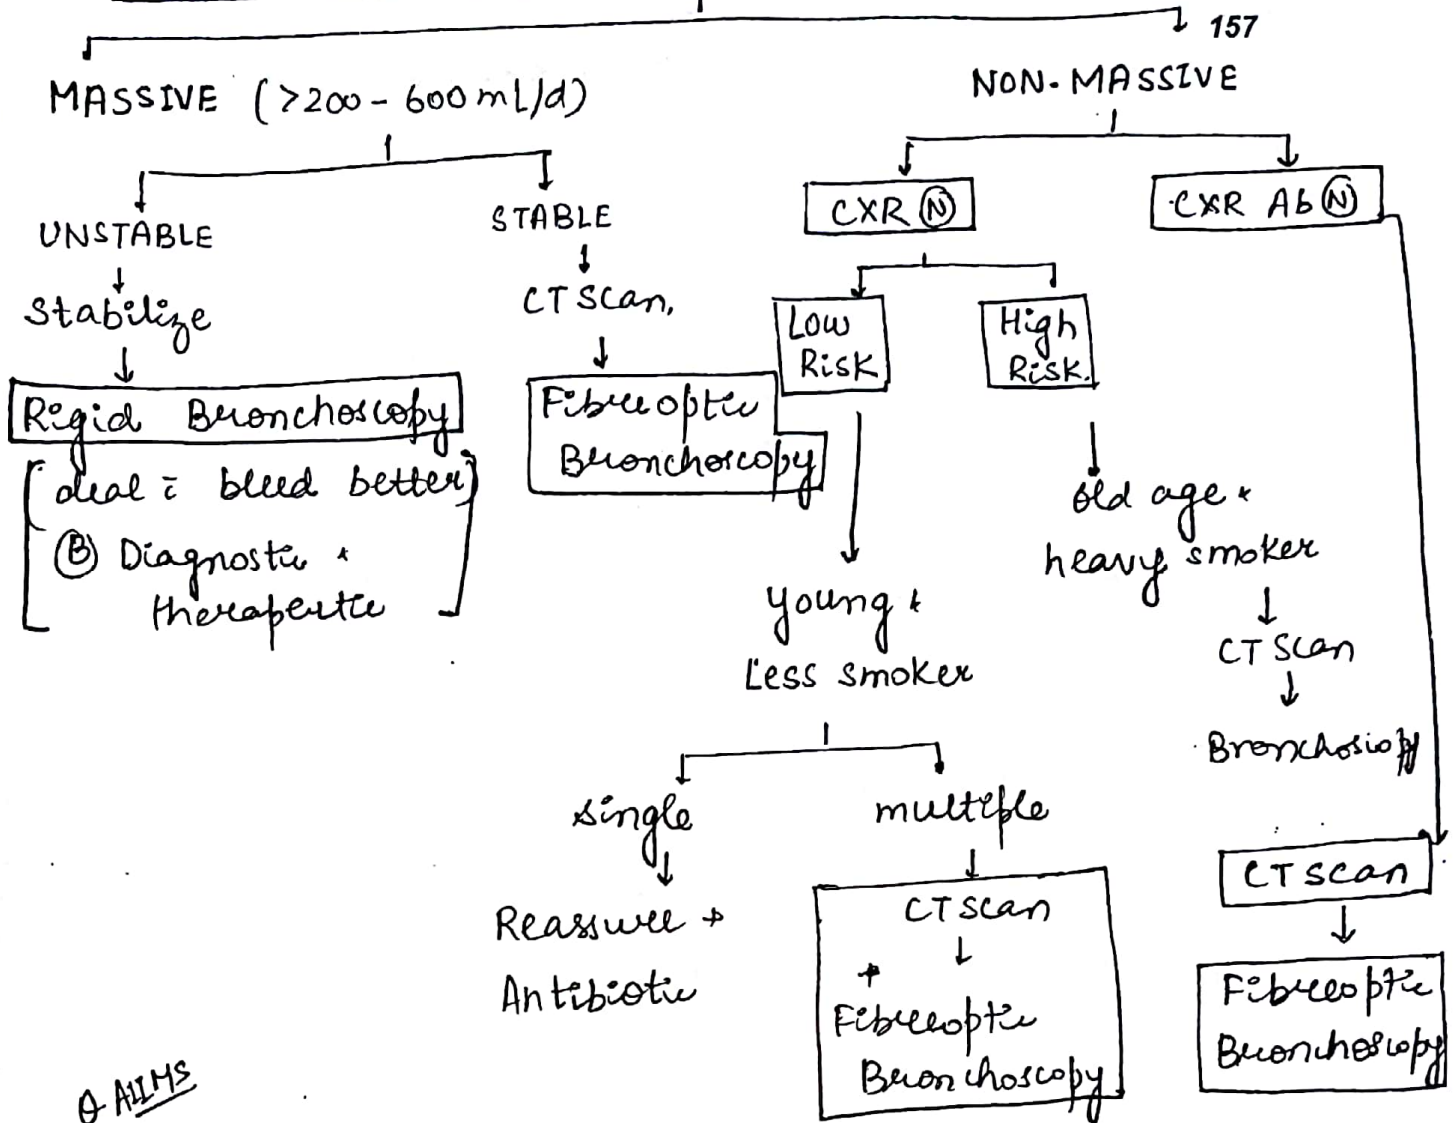 157
MASSIVE (>200 - 600 mL/d)
NON-MASSIVE
UNSTABLE
Stabilize
Rigid Bronchoscopy
[deal c̄ bleed better
Ⓑ Diagnostic +
therapeutic]
STABLE
CT Scan.
Fibreoptic
Bronchoscopy
CXR Ⓝ
CXR Ab Ⓝ
Low
Risk
High
Risk.
young +
Less smoker
old age +
heavy smoker
CT Scan
Bronchoscopy
single
multiple
Reassure +
Antibiotic
CT scan
+
Fibreoptic
Bronchoscopy
CT scan
Fibreoptic
Bronchoscopy
Q AIIMS